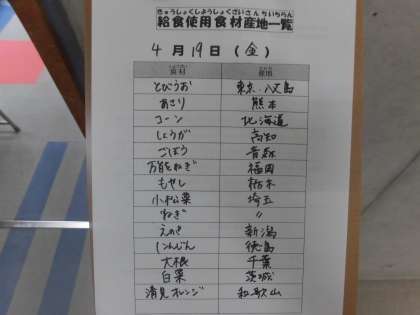 きゅうしょくしようしょくざいさんちいちらん
給食使用食材産地一覧
4月19日(金)
食材 産地
とびうお 東京・八丈島
あさり 熊本
コーン 北海道
しょうが 高知
ごぼう 青森
万能ねぎ 福岡
もやし 栃木
小松菜 埼玉
ねぎ 〃
えのき 新潟
にんじん 徳島
大根 千葉
白菜 茨城
清見オレンジ 和歌山